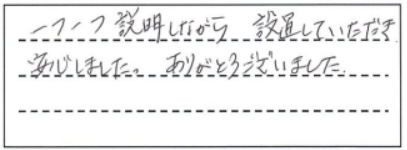 一つ一つ説明しながら 設置していただき
安心しました。 ありがとうございました.